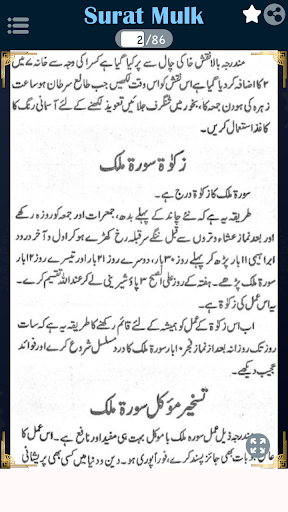 Surat Mulk
2 /86
مندرجہ بالا نقش خاکی چال سے پر کیا گیا ہے کسر کی وجہ سے خانہ نمبر میں
۲ کا اضافہ کر دیا گیا ہے اس نقش کو اس وقت لکھیں جب طالع سرطان ہو ساعت
زہرہ کی ہو دن جمعہ کا، بخور میں شنگرف جلائیے تعویذ لکھنے کے لئے آسمانی رنگ کا
کاغذ استعمال کریں۔
زکوٰۃ سورۃ ملک
سورۃ ملک کا زکوٰۃ درج ہے۔
طریقہ یہ ہے کہ نئے چاند کے پہلے بدھ، جمعرات اور جمعہ کو روزہ رکھے
اور بعد نماز عشاء وتروں سے قبل ننگے سر قبلہ رخ کھڑے ہو کر اول و آخر درود
ابراہیمی ۱۱ بار پڑھ کر پہلے روز ۳۰ بار، دوسرے روز ۲۱ بار اور تیسرے روز ۲۰ بار
سورۃ ملک پڑھے۔ ہفتہ کے روز علی الصبح ۳ پاؤ شیرینی لے کر عند اللہ تقسیم کر دے۔
یہ اس عمل کی زکوٰۃ ہے۔
اب اس زکوٰۃ کے عمل کو ہمیشہ کے لئے قائم رکھنے کا طریقہ یہ ہے کہ سات
روز تک روزانہ بعد از نماز فجر ۱۰ بار سورۃ ملک کا ورد مسلسل شروع کرے اور فوائد
عجیب دیکھے۔
تسخیر مؤکل سورۃ ملک
مندرجہ ذیل عمل سورۃ ملک با موکل بہت ہی مفید اور نافع ہے۔ اس عمل کا
عامل جو بات بھی جائز پسند کرے، فوراً پوری ہو۔ دین و دنیا میں کسی بھی پریشانی